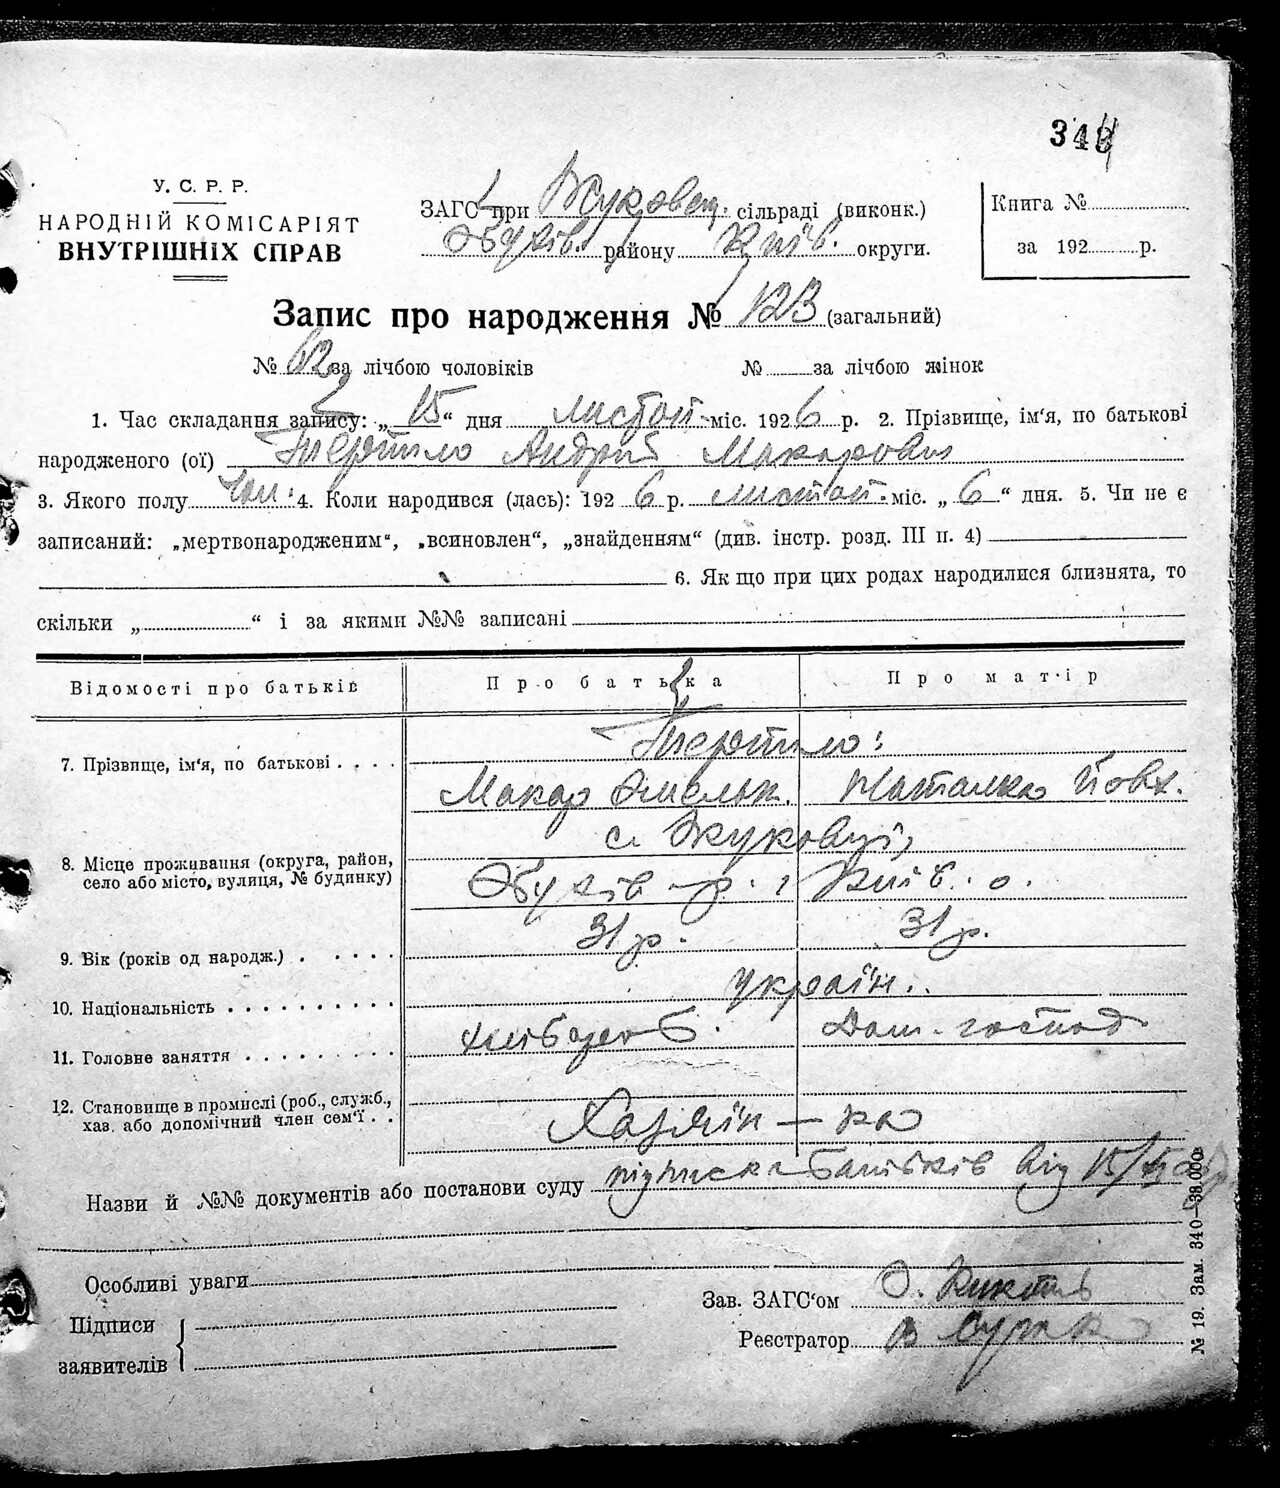 344
У. С. Р. Р.
НАРОДНІЙ КОМІСАРІЯТ
ВНУТРІШНІХ СПРАВ
ЗАГС при Жуковец. сільраді (виконк.)
Обухів. району Київ. округи.
Книга №
за 192 р.
Запис про народження № 123 (загальний)
№ 62 за лічбою чоловіків № за лічбою жінок
1. Час складання запису: „ 15 “ дня листоп. міс. 1926 р. 2. Прізвище, ім'я, по батькові
народженого (ої) Андрій Макарович
3. Якого полу Чол. 4. Коли народився (лась): 192 6 р. листоп. міс. „ 6 “ дня. 5. Чи не є
записаний: „мертвонародженим“, „всиновлен“, „знайденням“ (див. інстр. розд. III п. 4)
6. Як що при цих родах народилися близнята, то
скільки „ “ і за якими №№ записані
Відомості про батьків Про батька Про матір
7. Прізвище, ім'я, по батькові
Макар Омельк. Наталка Йовх.
с. Жуковці,
8. Місце проживання (округа, район,
село або місто, вулиця, № будинку)
Обухів р. Київ. о.
9. Вік (років од народж.) 31 р. 31 р.
10. Національність україн.
11. Головне заняття хлібороб. Дом. господ
12. Становище в промислі (роб., служб.,
хаз. або допомічний член сем'ї
Хазяїн — ка
Назви й №№ документів або постанови суду підписка батьків від 15/XI
Особливі уваги
Підписи
заявителів
Зав. ЗАГС'ом О.
Реєстратор
№ 19. Зам. 340—38.000